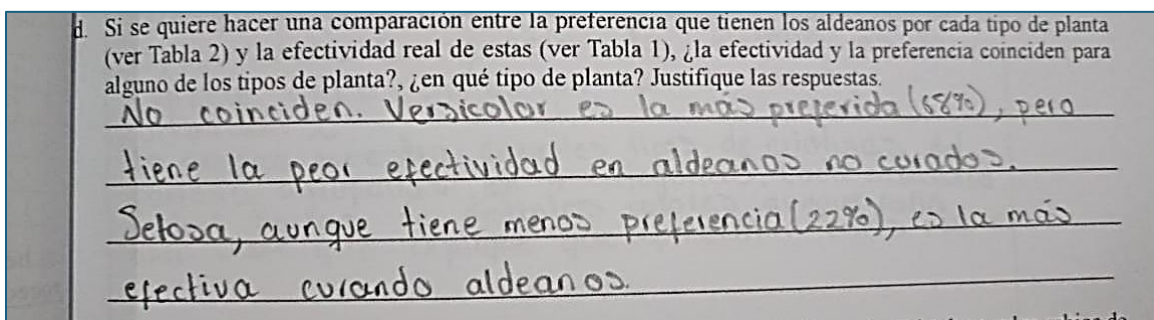 d. Si se quiere hacer una comparación entre la preferencia que tienen los aldeanos por cada tipo de planta
(ver Tabla 2) y la efectividad real de estas (ver Tabla 1), ¿la efectividad y la preferencia coinciden para
alguno de los tipos de planta?, ¿en qué tipo de planta? Justifique las respuestas.
No coinciden. Versicolor es la más preferida (58%), pero
tiene la peor efectividad en aldeanos no curados.
Setosa, aunque tiene menos preferencia (22%), es la más
efectiva curando aldeanos.